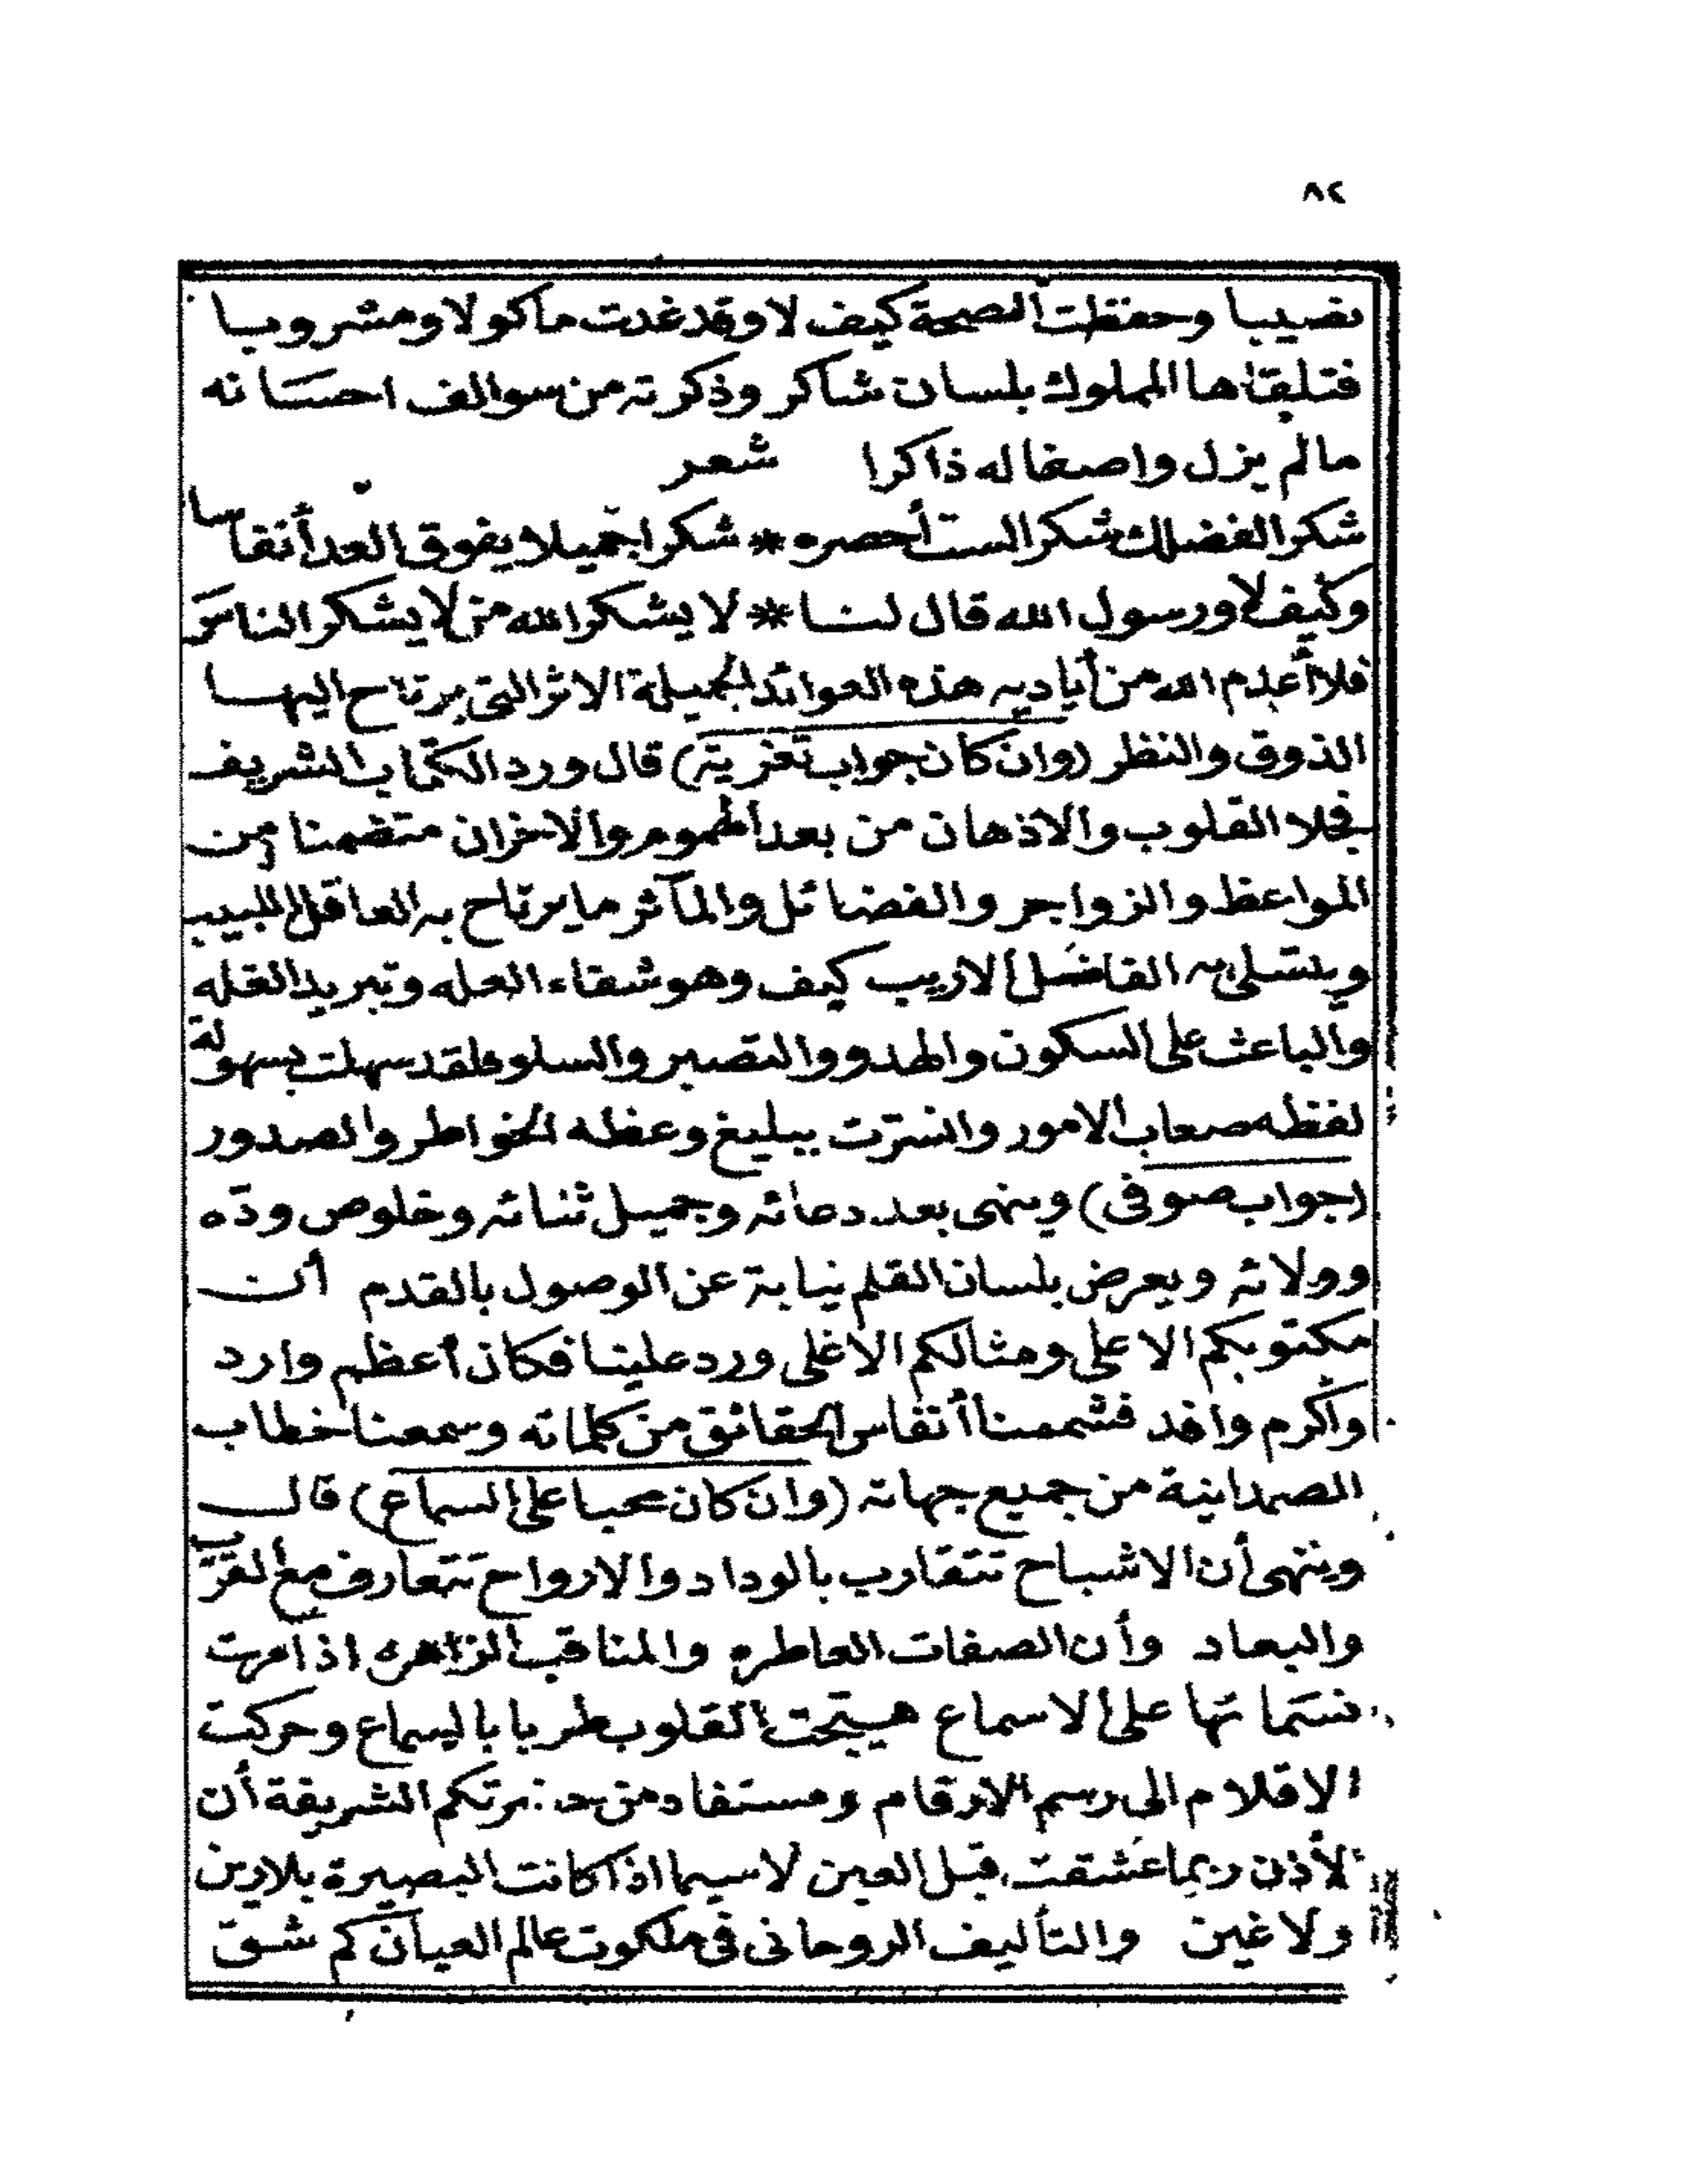 ٨٢
نصيبا وحفظت الصحة كيف لا وقد غدت مأكولا ومشروبا
فتلقاها المملوك بلسان شاكر وذكرته من سوالف احسانه
مالم يزل واصفا له ذاكرا شعر
شكرا لفضلك شكرا لست أحصره * شكرا جميلا يفوق العد أنفاسا
وكيف لا ورسول الله قال لنا * لا يشكر الله من لا يشكر الناسَ
فلا أعدم الله من أياديه هذه العوائد الجميلة الاثر التى يرتاح اليها
الذوق والنظر (وان كان جواب تعزية) قال ورد الكتاب الشريف
فجلا القلوب والاذهان من بعد الهموم والاحزان متضمنا من
المواعظ والزواجر والفضائل والمآثر ما يرتاح به العاقل اللبيب
ويتسلى به الفاضل الاريب كيف وهو شفاء العله وتبريد الغله
والباعث على السكون والهدو والتصبر والسلو فلقد سهلت بسهولة
لفظه صعاب الامور وانسرت ببليغ وعظه الخواطر والصدور
(جواب صوفى) وينهى بعد دعائه وجميل ثنائه وخلوص ودّه
وولائه ويعرض بلسان القلم نيابة عن الوصول بالقدم أن
مكتوبكم الاعلى ومثالكم الاغلى ورد علينا فكان أعظم وارد
واكرم وافد فشممنا أنفاس الحقائق من كلماته وسمعنا خطاب
الصمدانية من جميع جهاته (وان كان محبا على السماع) قال
وينهى أن الاشباح تتقارب بالوداد والارواح تتعارف مع القرب
والبعاد وأن الصفات العاطره والمناقب الزاهره اذا مرت
نسماتها على الاسماع هيجت القلوب طربا بالسماع وحركت
الاقلام الى رسم الارقام ومستفاد من الشريفة أن
الأذن ربما عشقت قبل العين لاسيما اذا كانت البصيرة بلا رين
ولا غين والتأليف الروحانى فى ملكوت عالم العيان كم شق